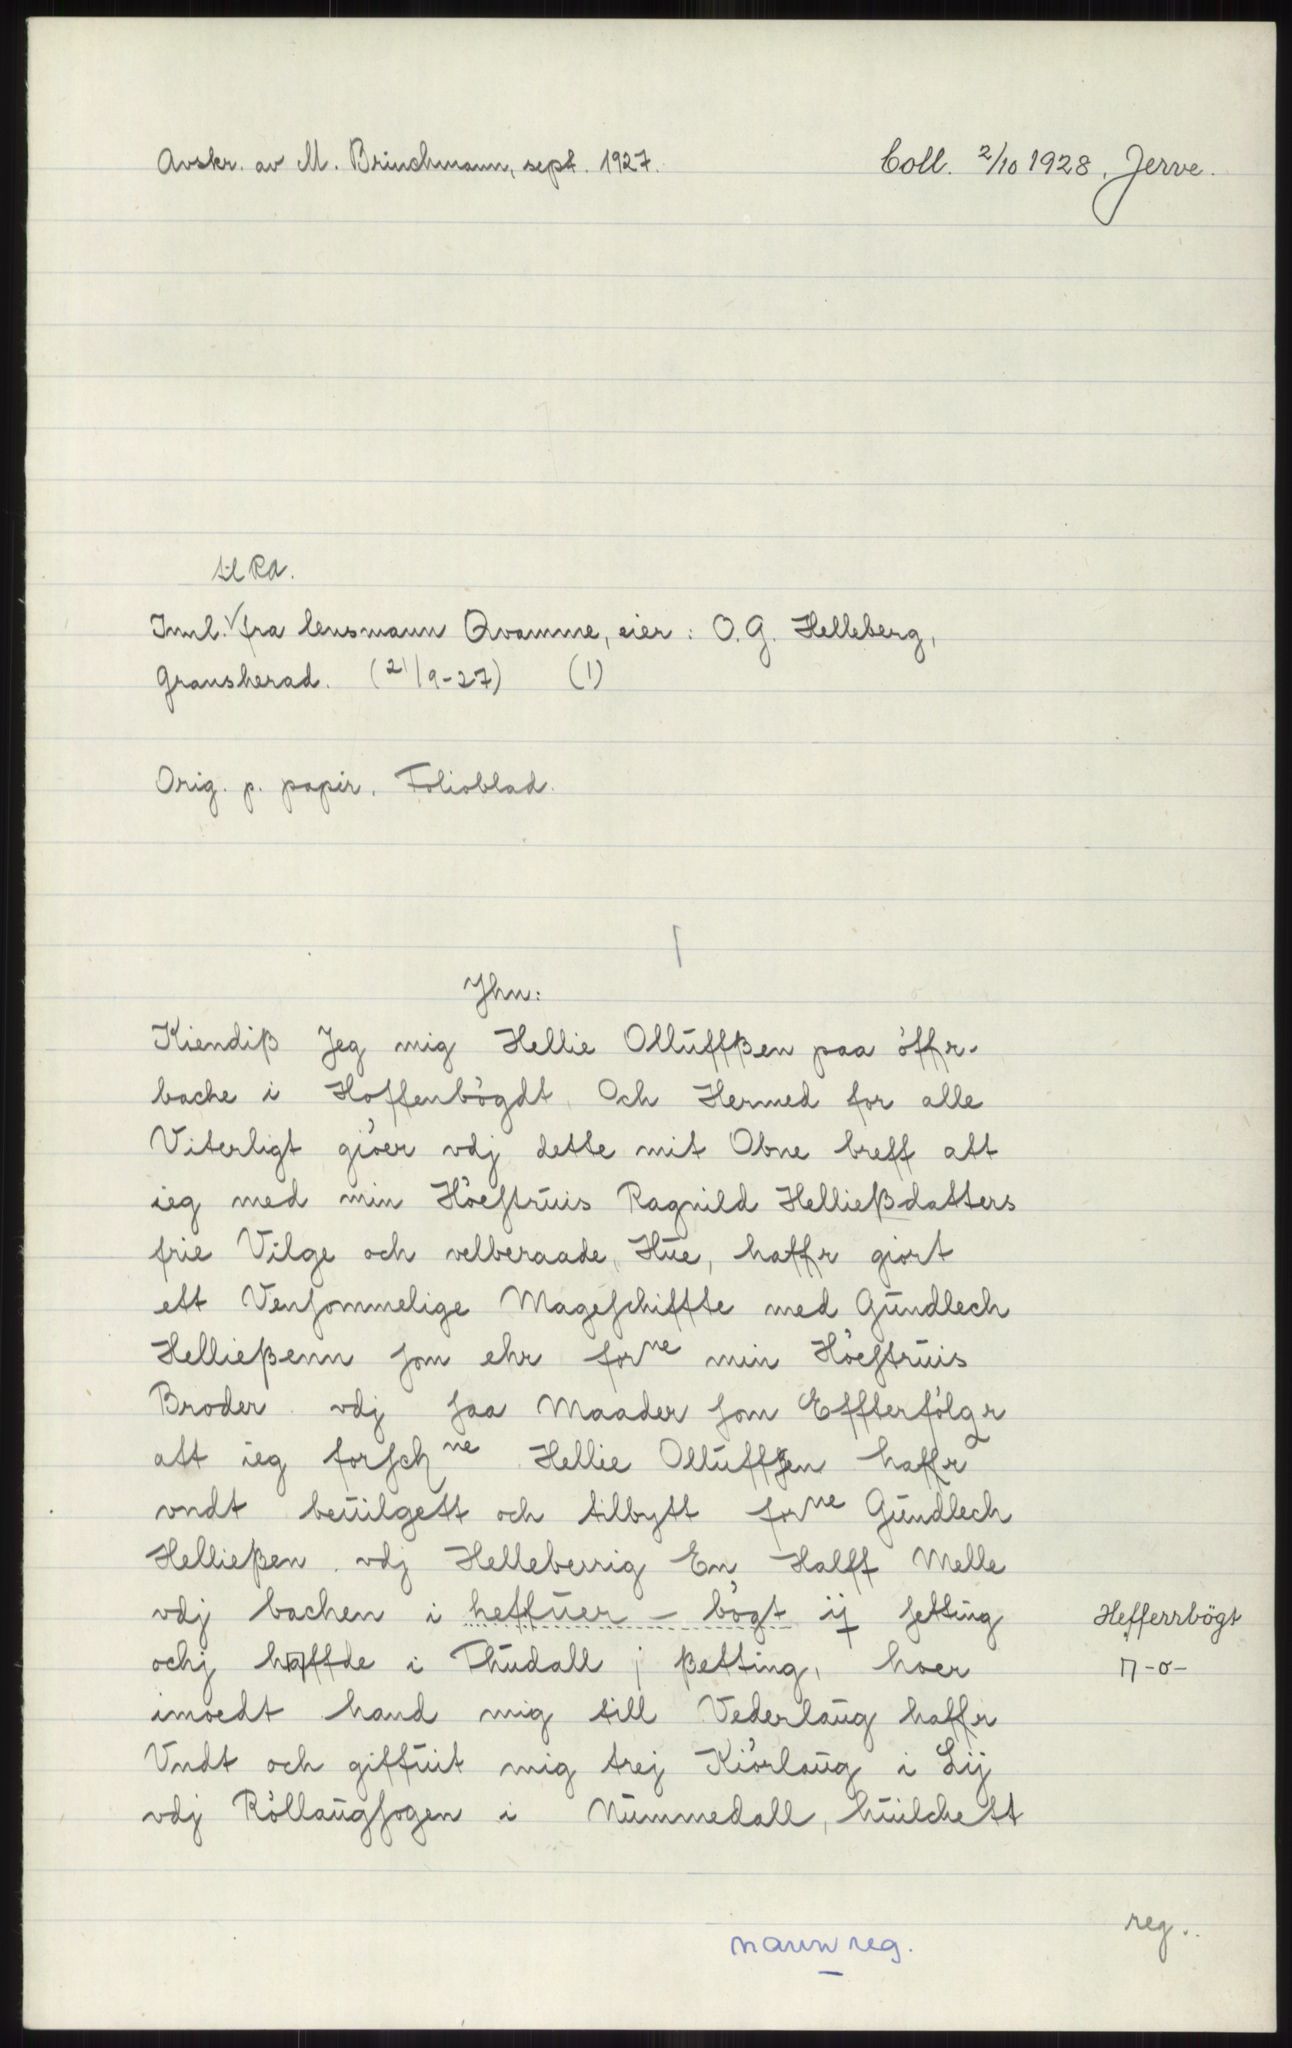 Avskr. av M. Brinchmann, sept. 1927.
Coll. 2/10 1928, Jerve.
til RA.
Innl. fra lensmann Qvamme, eier: O. G. Helleberg,
Gransherad. (21/9-27) (1)
Orig. p. papir. Folioblad.
Jhn:
Kiendiß Jeg mig Hellie Olluffßen paa öffr-
bache i Hoffenbögdt Och Hermed for alle
Viterligt giöer vdj dette mit Obne breff att
ieg med min Höestruis Ragnild Helließdatters
frie Vilge och velberaade Hue, haffr giort
ett Vensommelige Mageschiffte med Gundlech
Helließenn som ehr forne min Höestruis
Broder vdj saa Maader som Effterfölgr
att ieg forschne Hellie Olluffsen haffr
vndt beuilgett och tilbytt forne Gundlech
Helließen vdj Helleberrig En Halff Melle
vdj bachen i heffuer - bögt ij setting
Hefferrbögt
ochj haffde i Thudall j ßetting, hoer
π-o-
imoedt hand mig till Vederlaug haffr
Vndt och giffuit mig trej Kiörlaug i Lij
vdj Röllaugsogen i Nummedall, huilchett
reg.
navnreg.